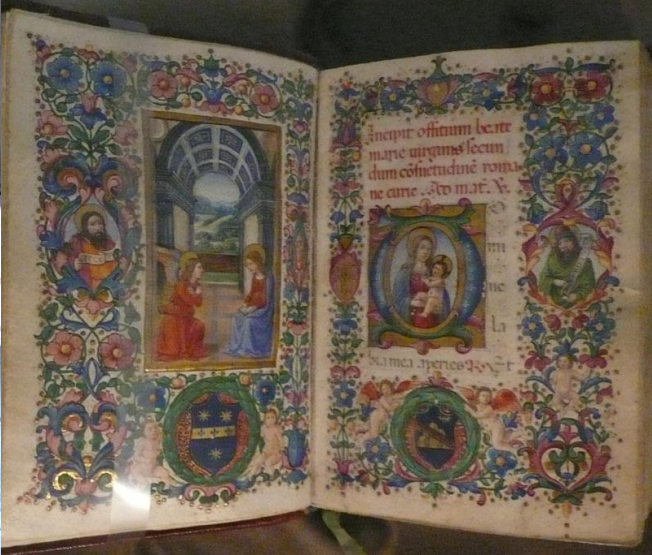 Incipit offitium beate
marie virginis secun
dum cōsuetudinē roma
ne curie. Ad mat. V.
D
o
mi
ne
la
bia mea aperies. R. Et